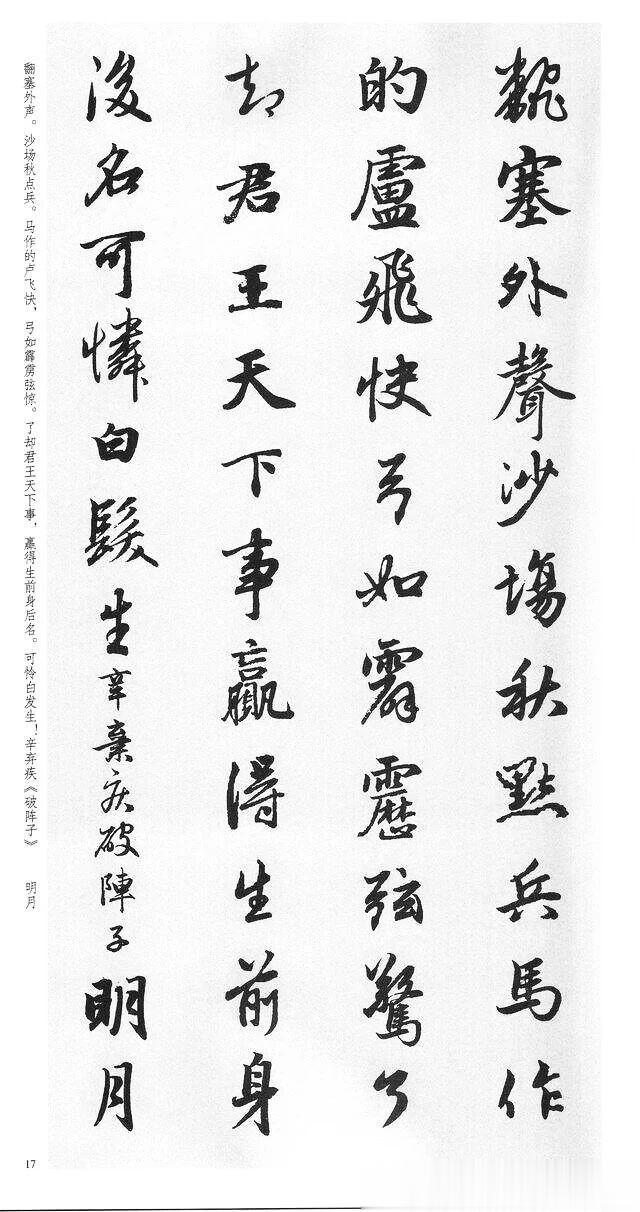 飜塞外聲沙場秋點兵馬作
的盧飛快弓如霹靂弦驚了
却君王天下事贏得生前身
後名可憐白髮生辛棄疾破陣子明月
翻塞外声。沙场秋点兵。马作的卢飞快，弓如霹雳弦惊。了却君王天下事，赢得生前身后名。可怜白发生！辛弃疾《破阵子》 明月
17